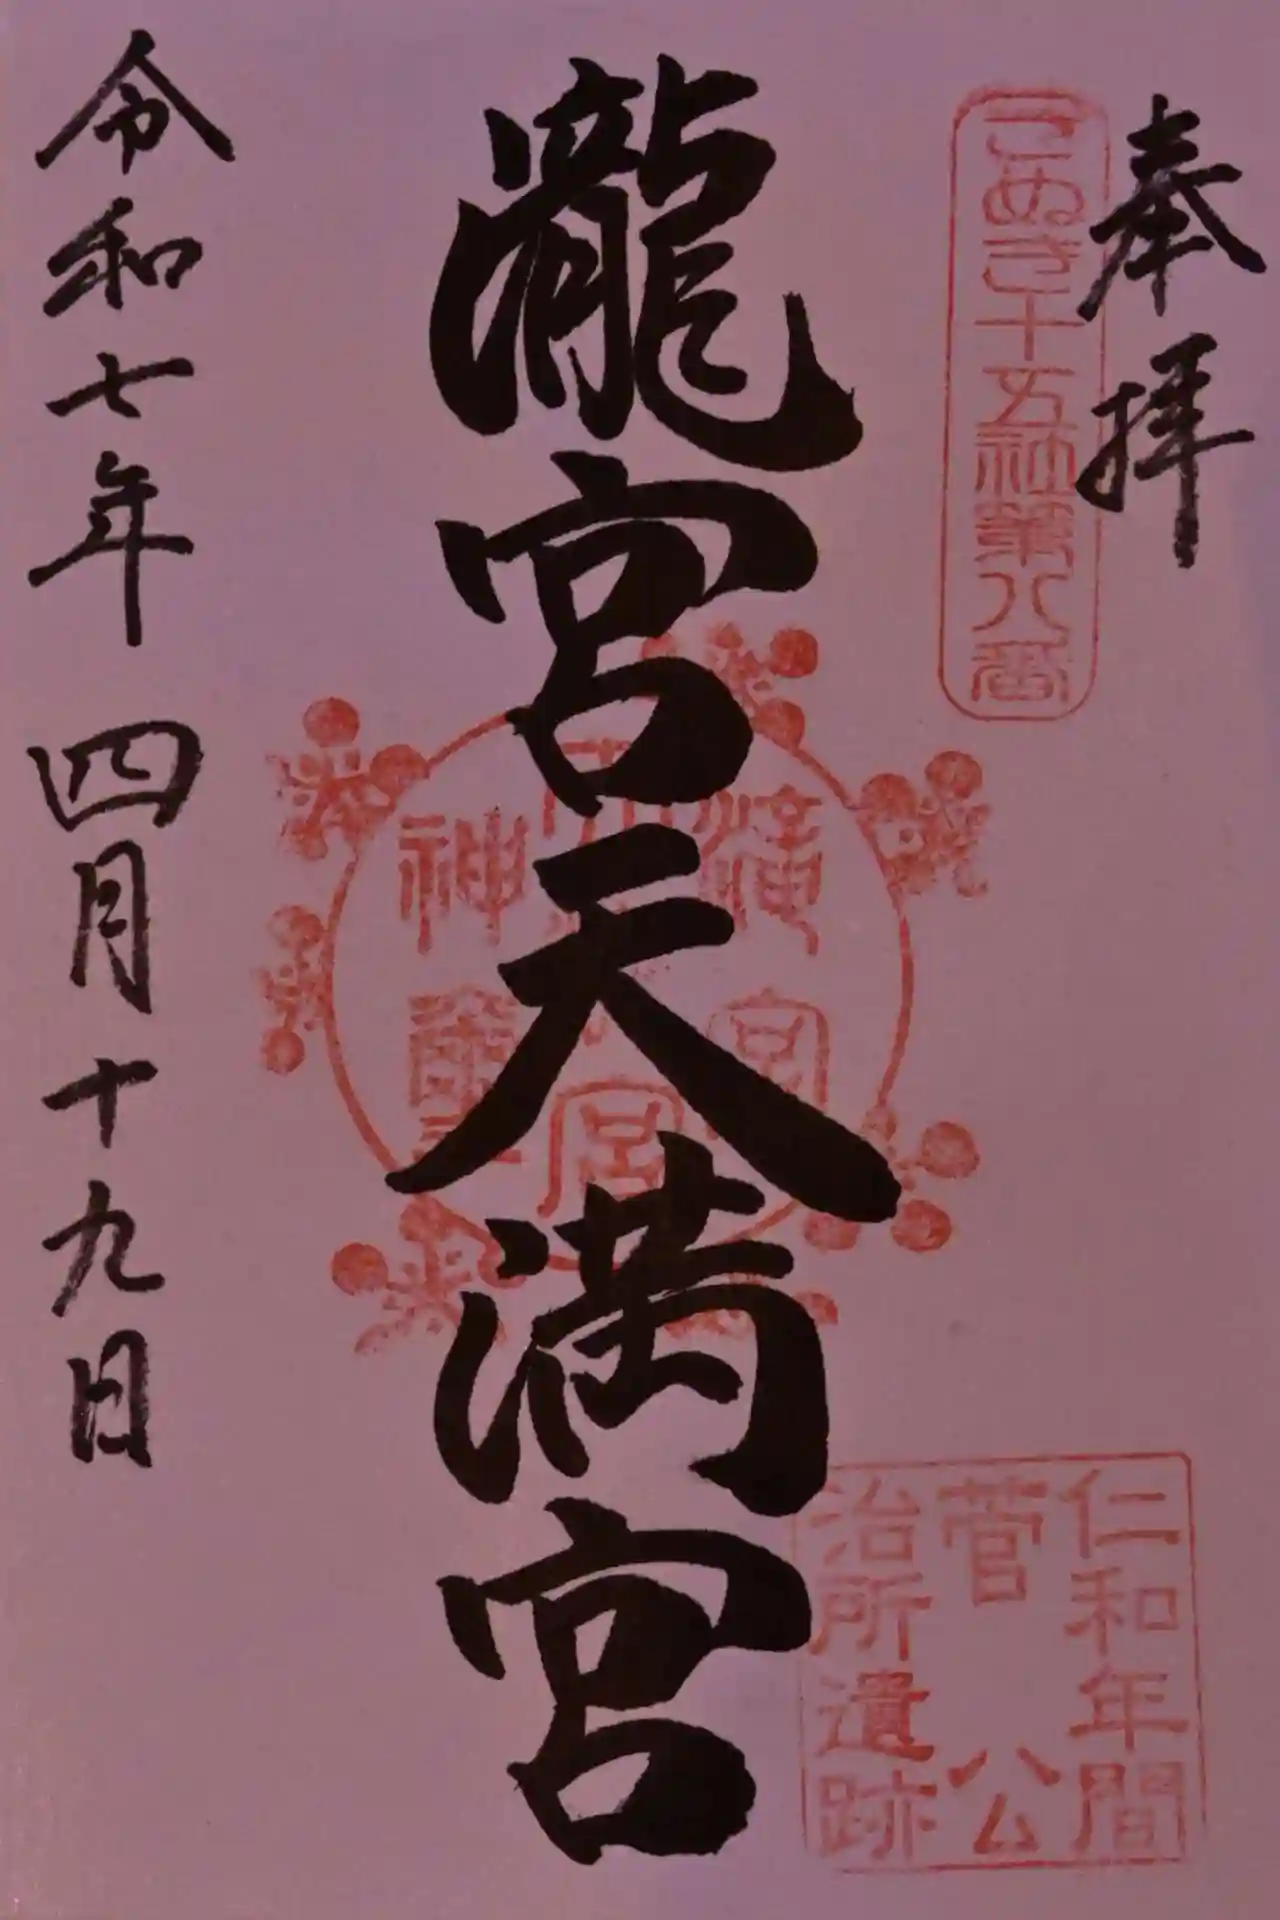 奉拝
さぬき十五社第八番
瀧宮天満宮
仁和年間
菅公
治所遺跡
令和七年 四月十九日